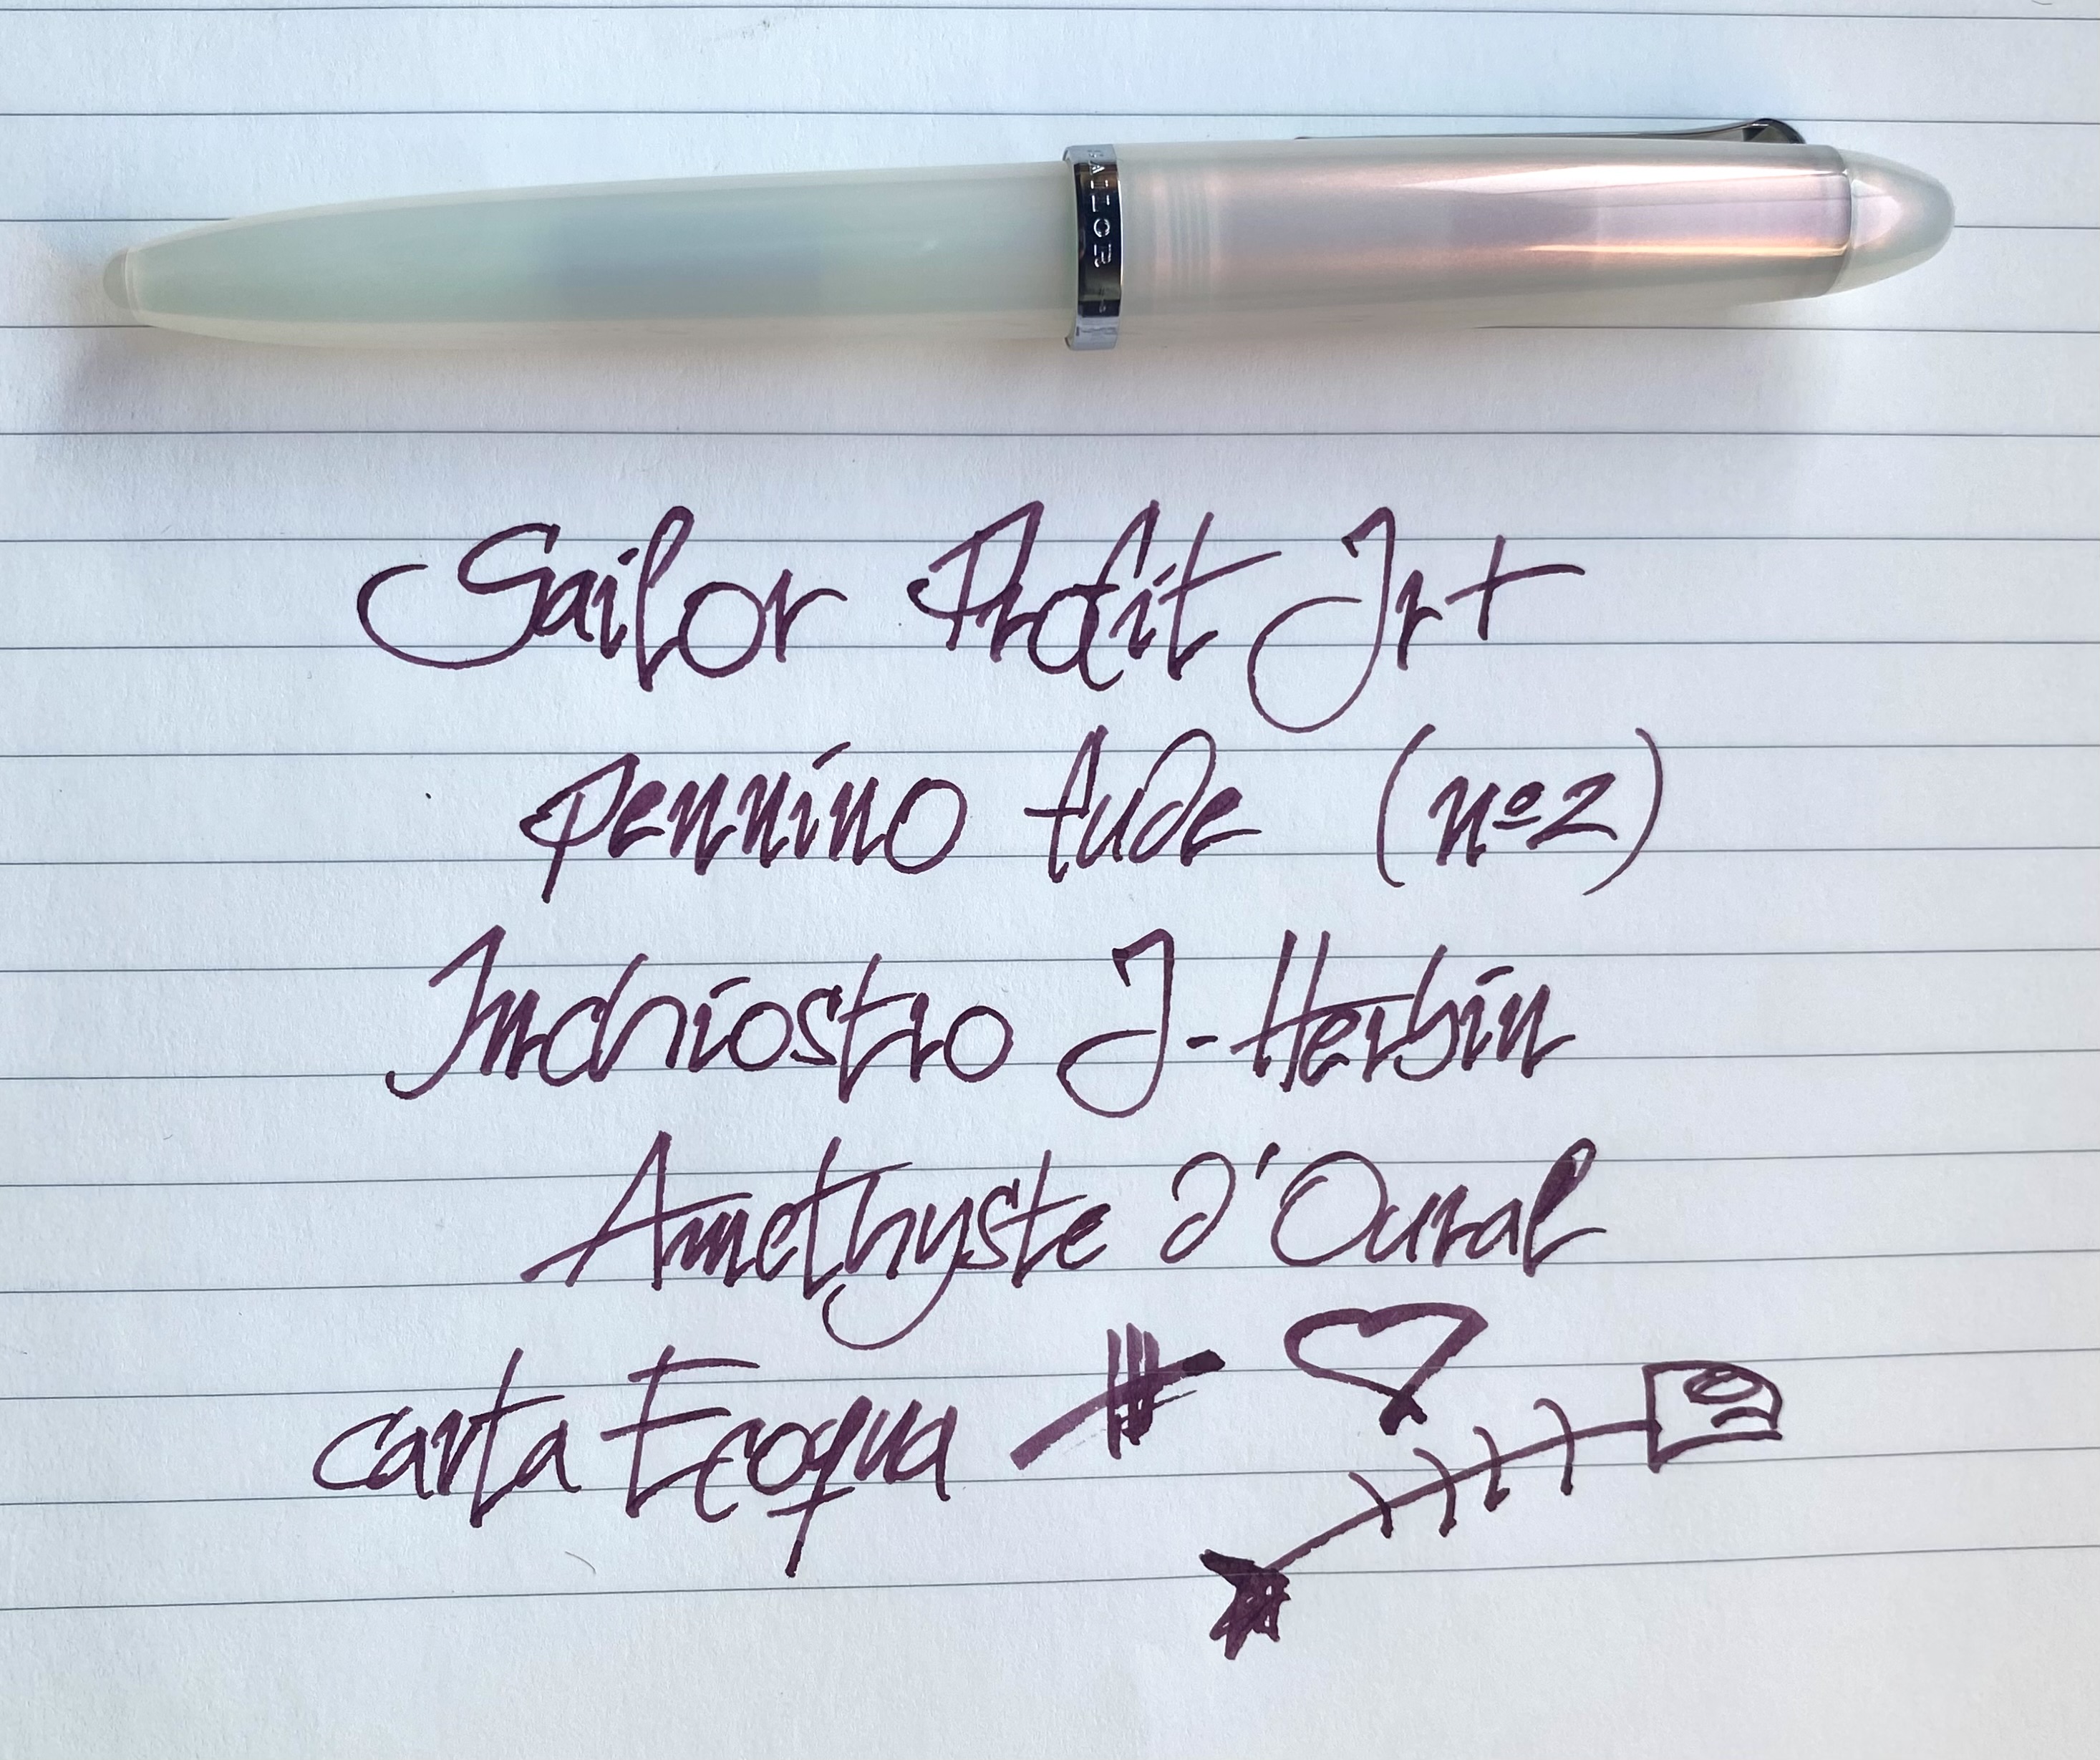 SAILOR
Sailor Profit Jr+
pennino fude (nº2)
Inchiostro J-Herbin
Amethyste d'Oural
carta Ecoqua